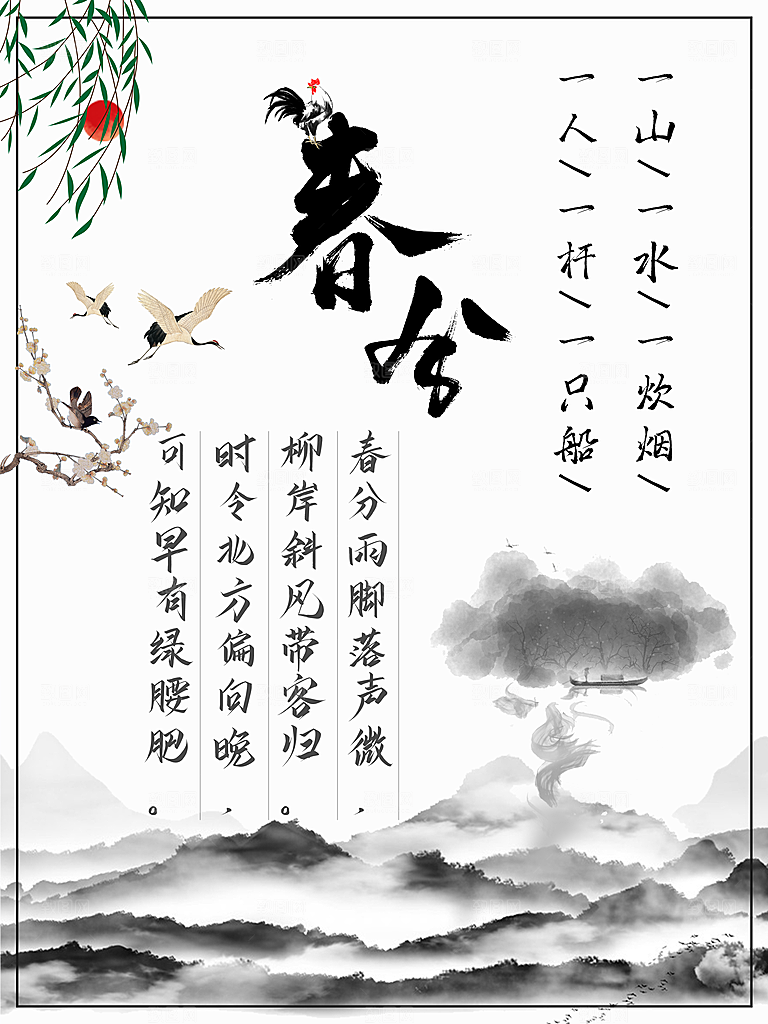 一山/一水/一炊烟/
一人/一杆/一只船/
春分
春分雨脚落声微，
柳岸斜风带客归。
时令北方偏向晚，
可知早有绿腰肥。